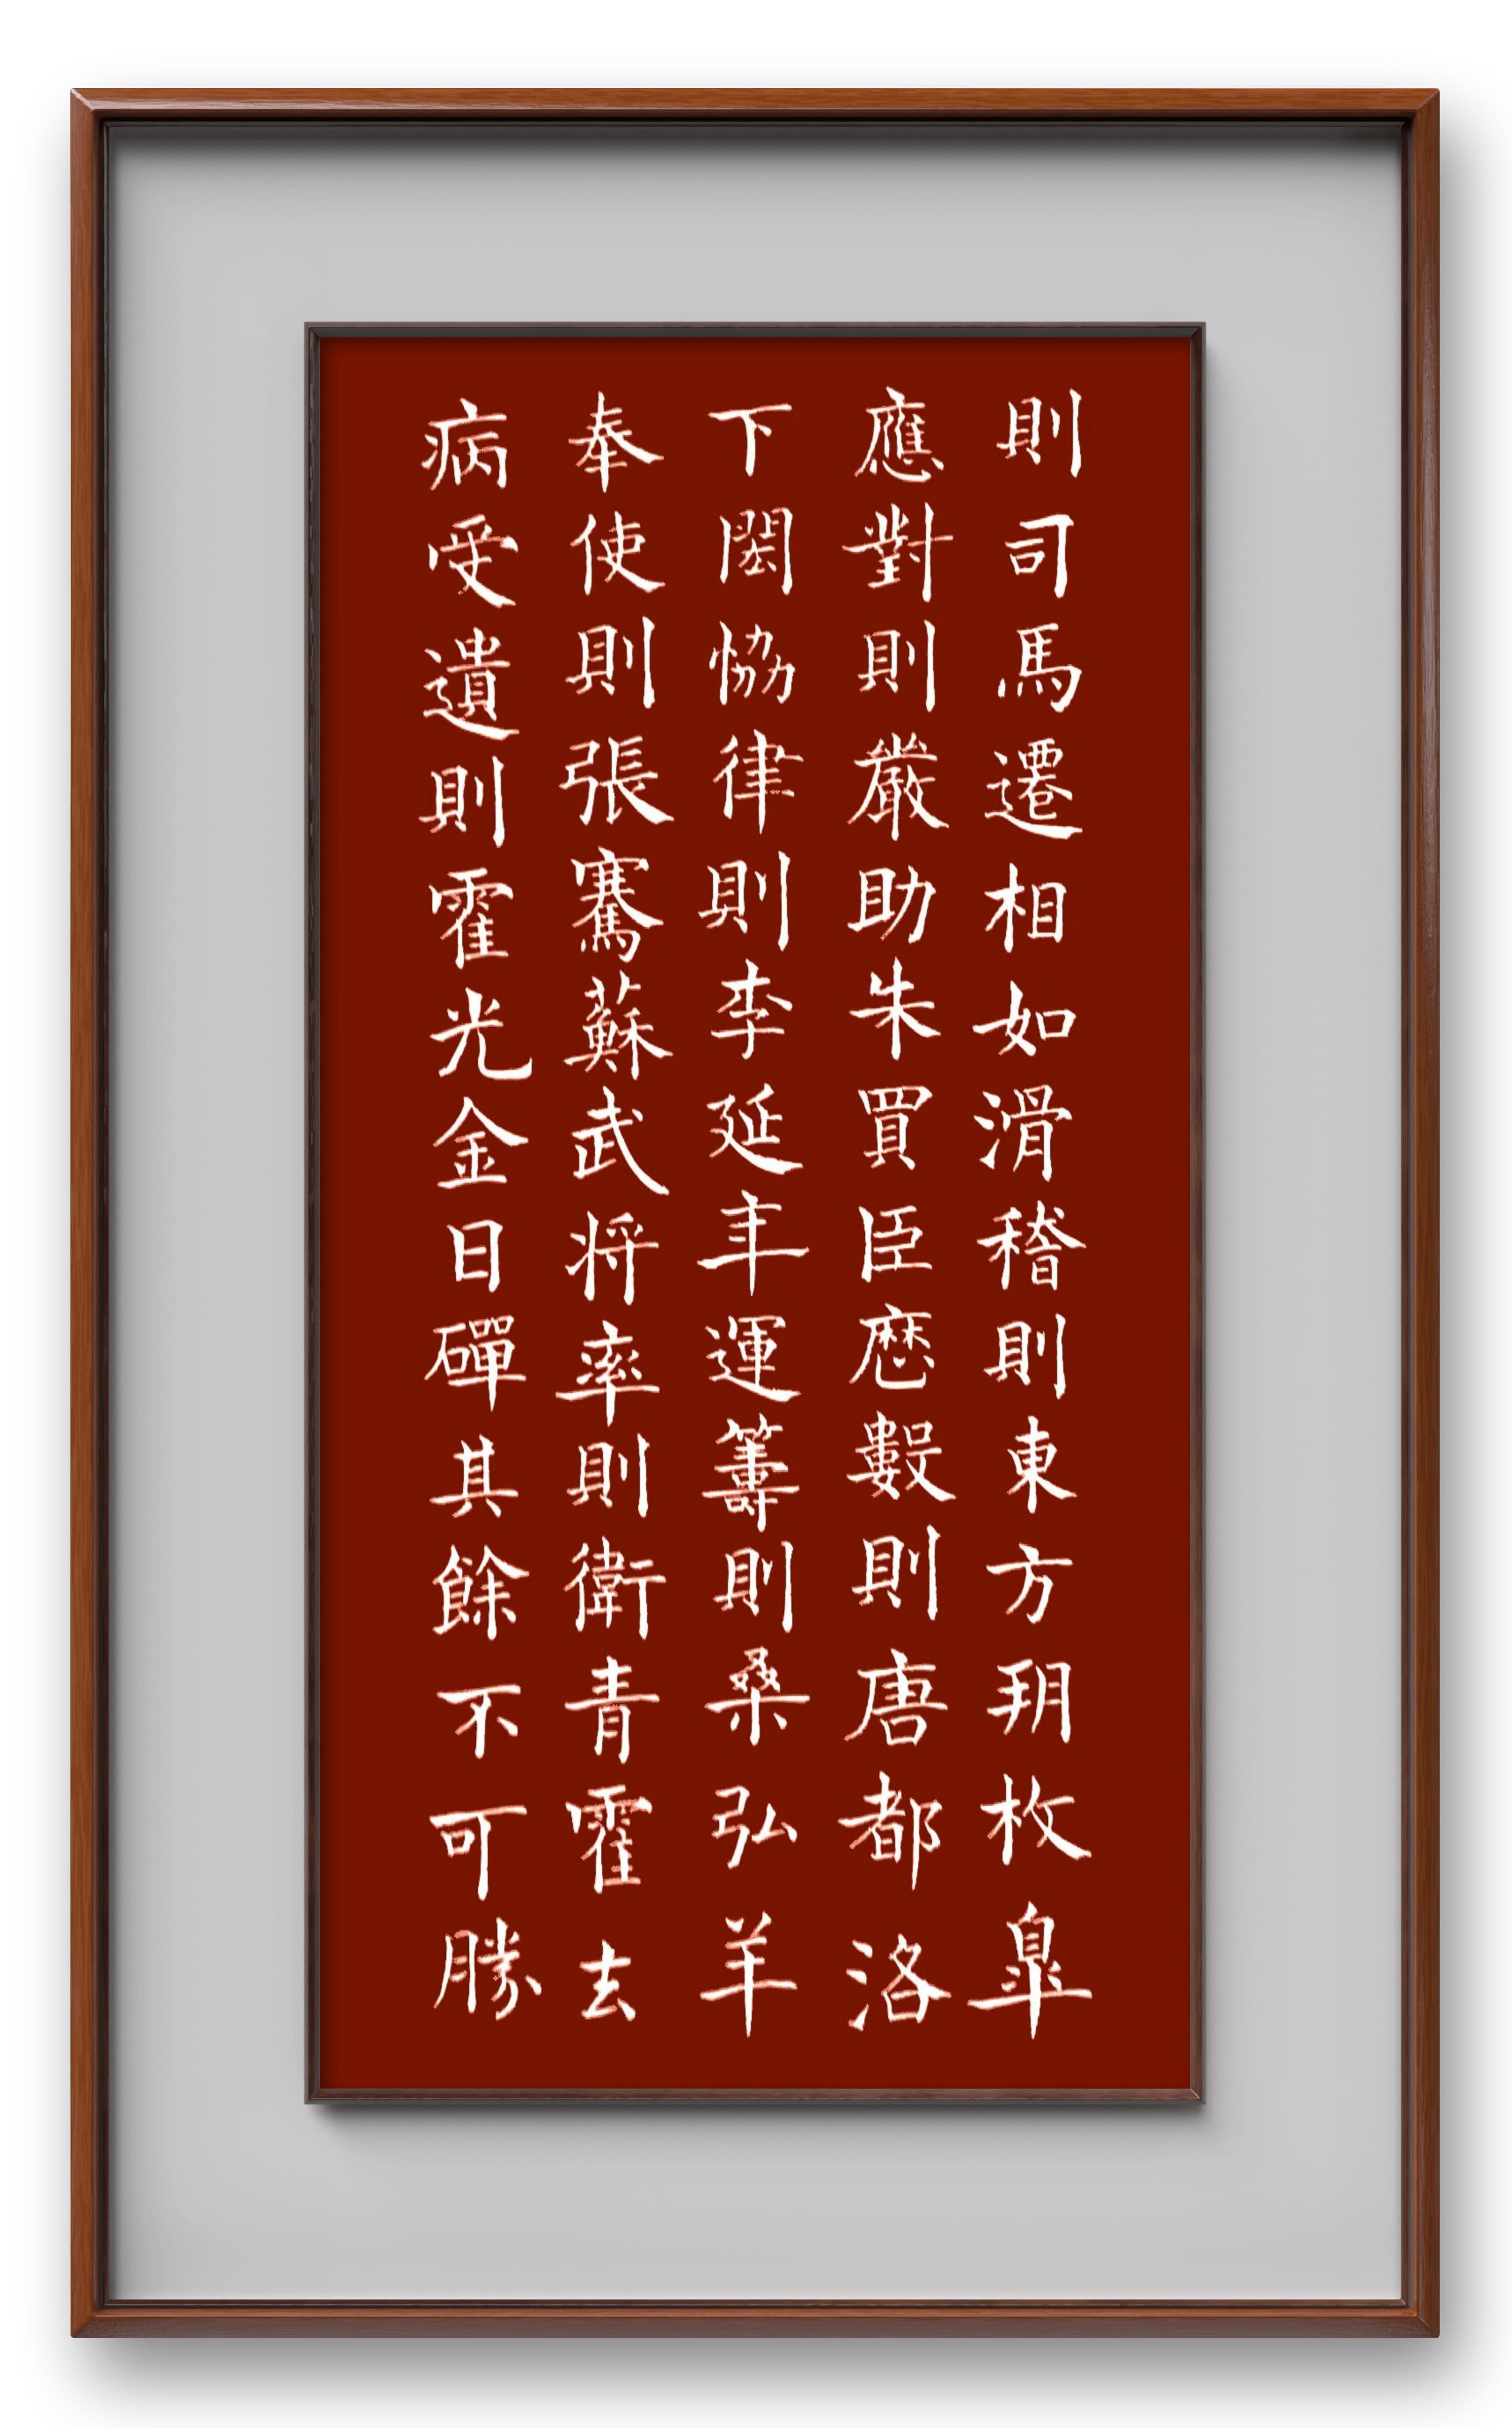 則司馬遷相如滑稽則東方朔枚皐
應對則嚴助朱買臣歷數則唐都洛
下閎恊律則李延年運籌則桑弘羊
奉使則張騫蘇武將率則衛青霍去
病受遺則霍光金日磾其餘不可勝